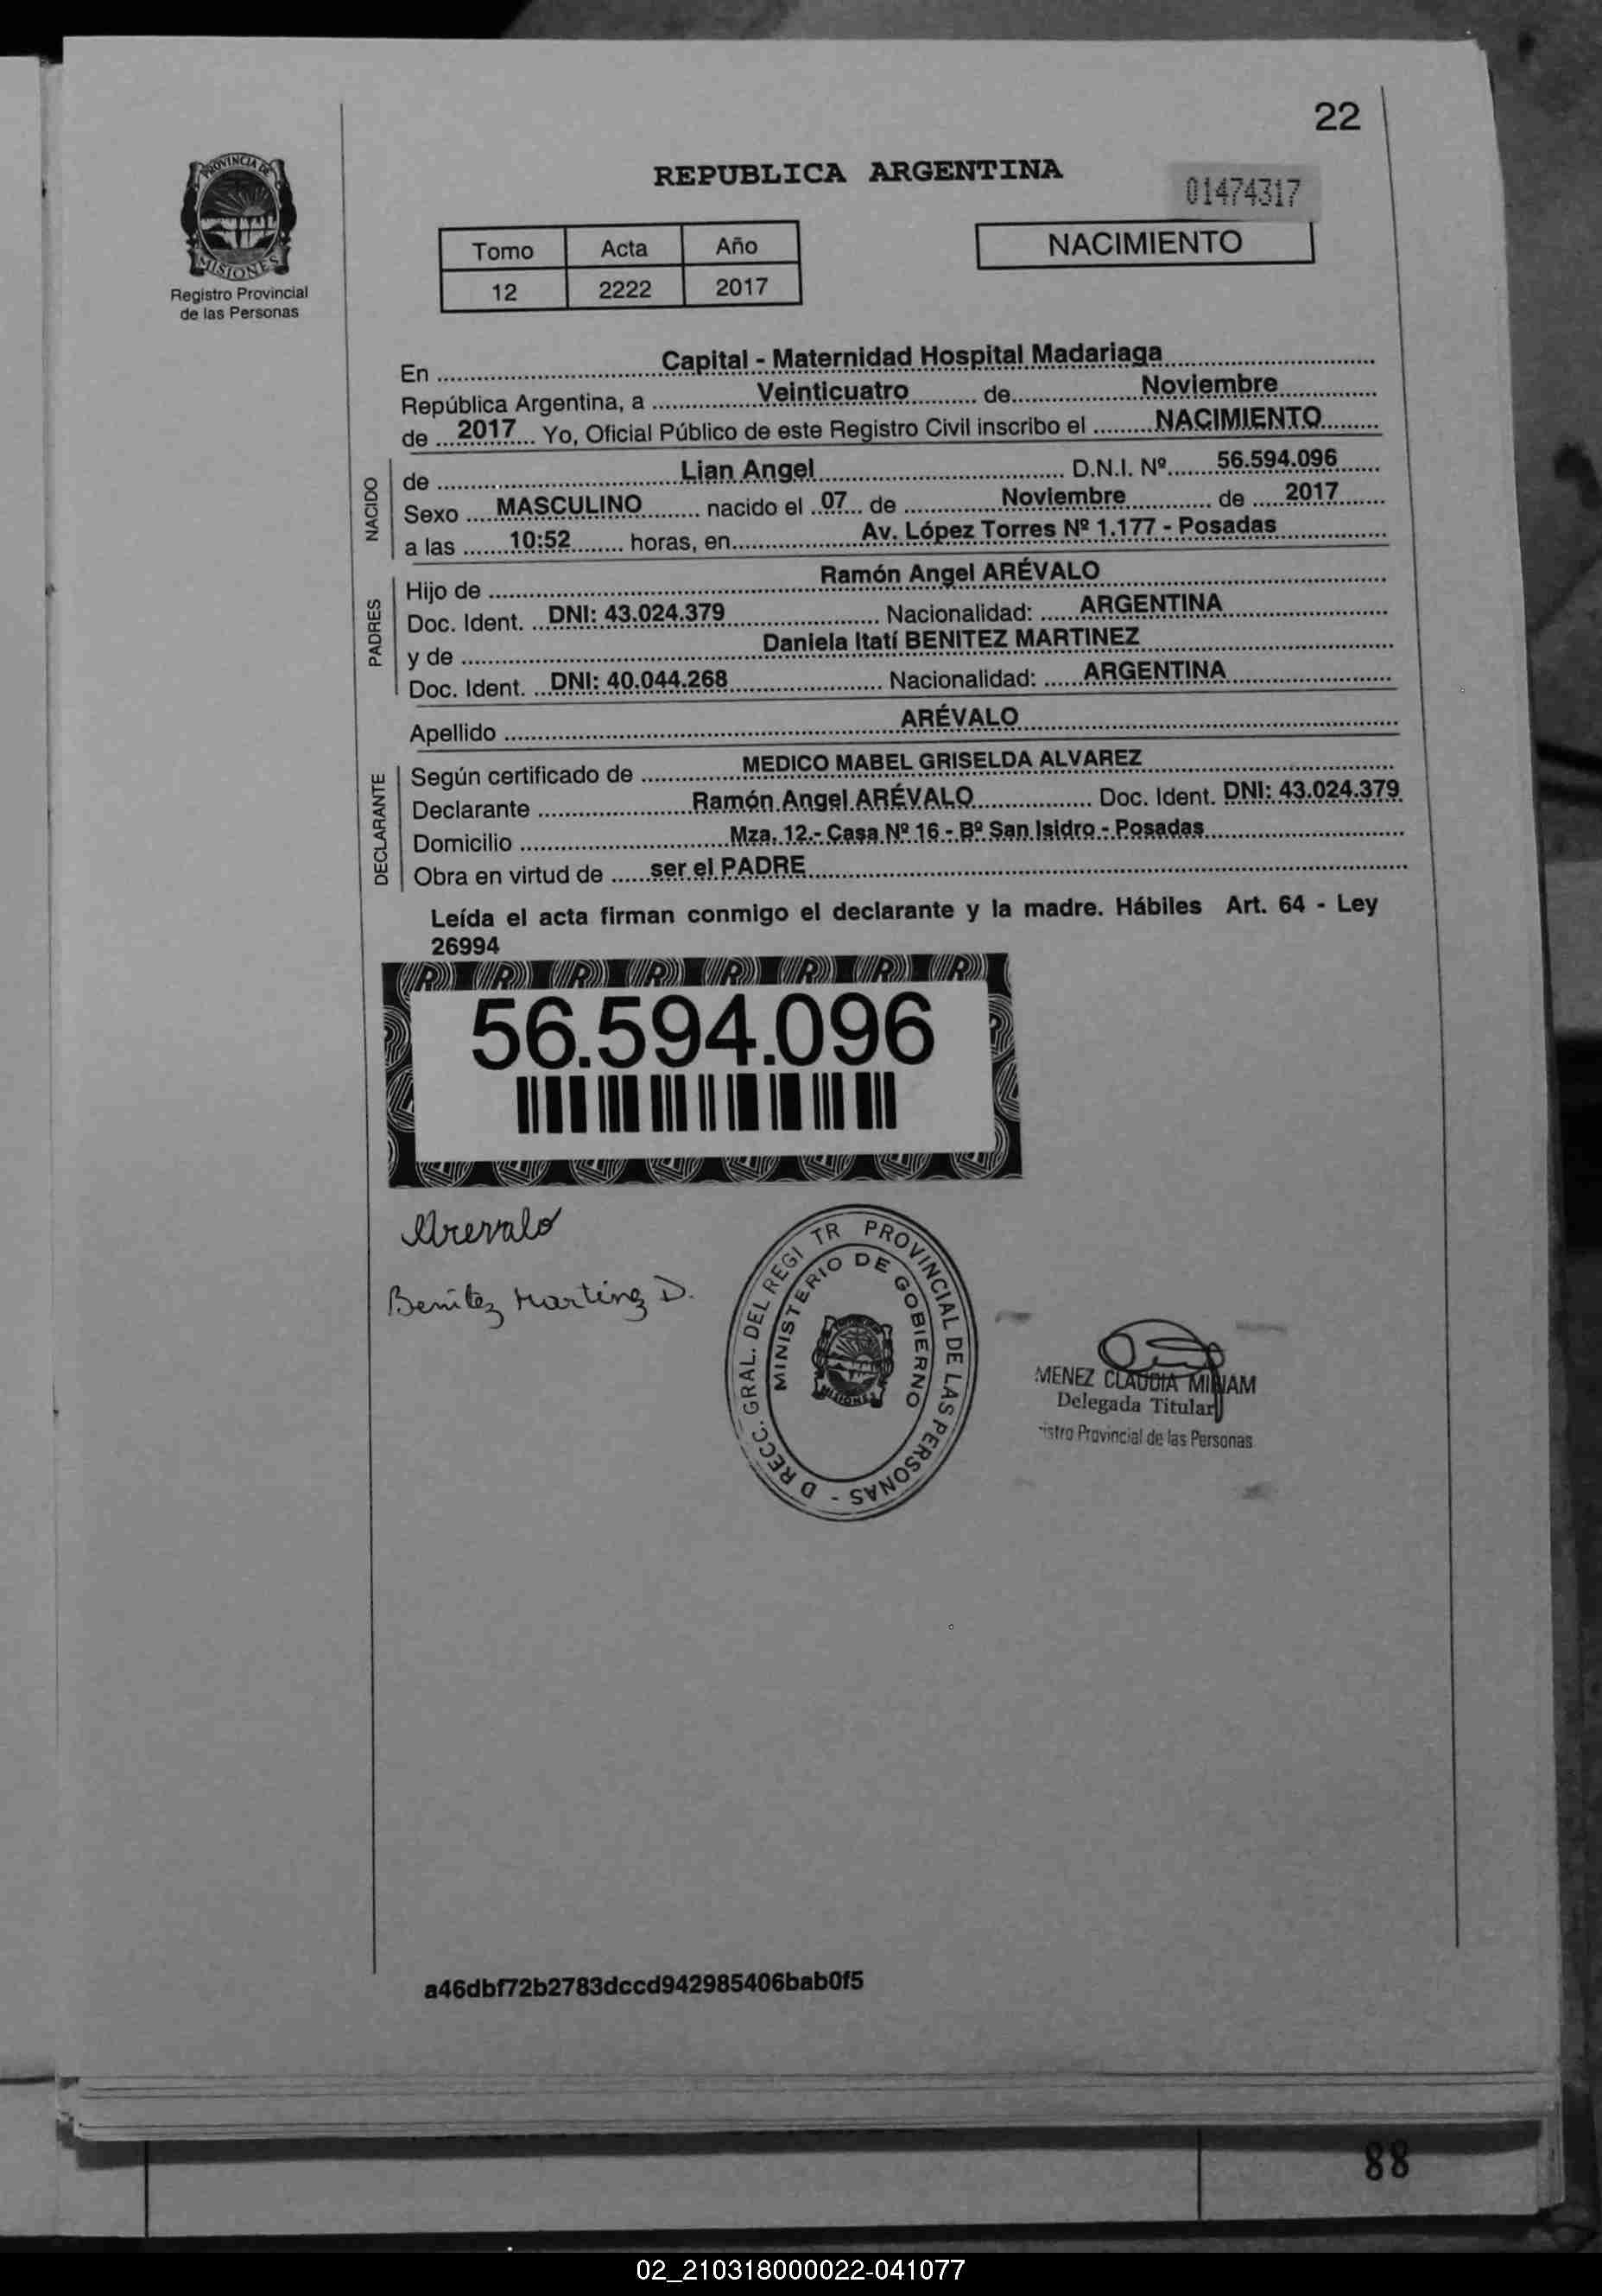 22
REPUBLICA ARGENTINA
01474317
PROVINCIA DE
MISIONES
Registro Provincial
de las Personas
Tomo Acta Año
12 2222 2017
NACIMIENTO
En Capital - Maternidad Hospital Madariaga
República Argentina, a Veinticuatro de Noviembre
de 2017 Yo, Oficial Público de este Registro Civil inscribo el NACIMIENTO
NACIDO
de Lian Angel D.N.I. Nº 56.594.096
Sexo MASCULINO nacido el 07 de Noviembre de 2017
a las 10:52 horas, en Av. López Torres Nº 1.177 - Posadas
PADRES
Hijo de Ramón Angel ARÉVALO
Doc. Ident. DNI: 43.024.379 Nacionalidad: ARGENTINA
y de Daniela Itatí BENITEZ MARTINEZ
Doc. Ident. DNI: 40.044.268 Nacionalidad: ARGENTINA
Apellido ARÉVALO
DECLARANTE
Según certificado de MEDICO MABEL GRISELDA ALVAREZ
Declarante Ramón Angel ARÉVALO Doc. Ident. DNI: 43.024.379
Domicilio Mza. 12.- Casa Nº 16 - Bº San Isidro - Posadas
Obra en virtud de ser el PADRE
Leída el acta firman conmigo el declarante y la madre. Hábiles Art. 64 - Ley
26994
56.594.096
Arevalo
Benitez Martinez D.
D RECC. GRAL. DEL REGI TR PROVINCIAL DE LAS PERSONAS -
MINISTERIO DE GOBIERNO
MISIONES
MENEZ CLAUDIA MIRIAM
Delegada Titular
istro Provincial de las Personas
a46dbf72b2783dccd942985406bab0f5
88
02_210318000022-041077